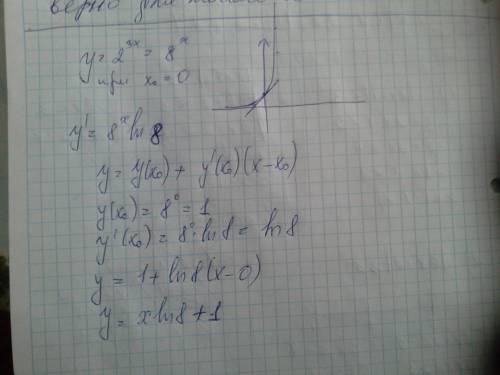 верно для
y = 2^{3x} = 8^x
при x₀ = 0
y' = 8^x ln 8
y = y(x₀) + y'(x₀)(x-x₀)
y(x₀) = 8⁰ = 1
y'(x₀) = 8⁰·ln 8 = ln 8
y = 1 + ln 8 (x-0)
y = x ln 8 + 1